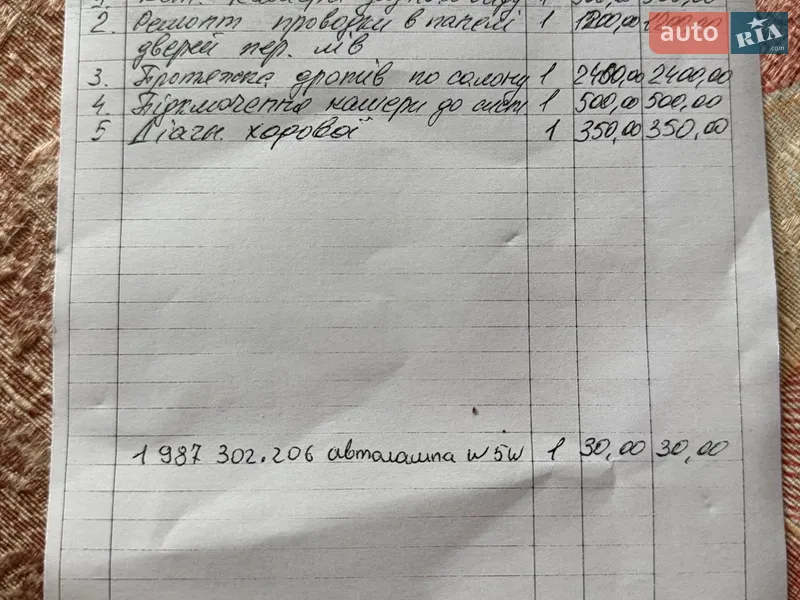 2. Ремонт проводки в панелі 1 1200,00
дверей пер. лів
3. Протяжка дротів по салону 1 2400,00 2400,00
4. Підключення камери до сист 1 500,00 500,00
5 Діагн. ходової 1 350,00 350,00
1 987 302.206 автолампа W5W 1 30,00 30,00
auto RIA .com